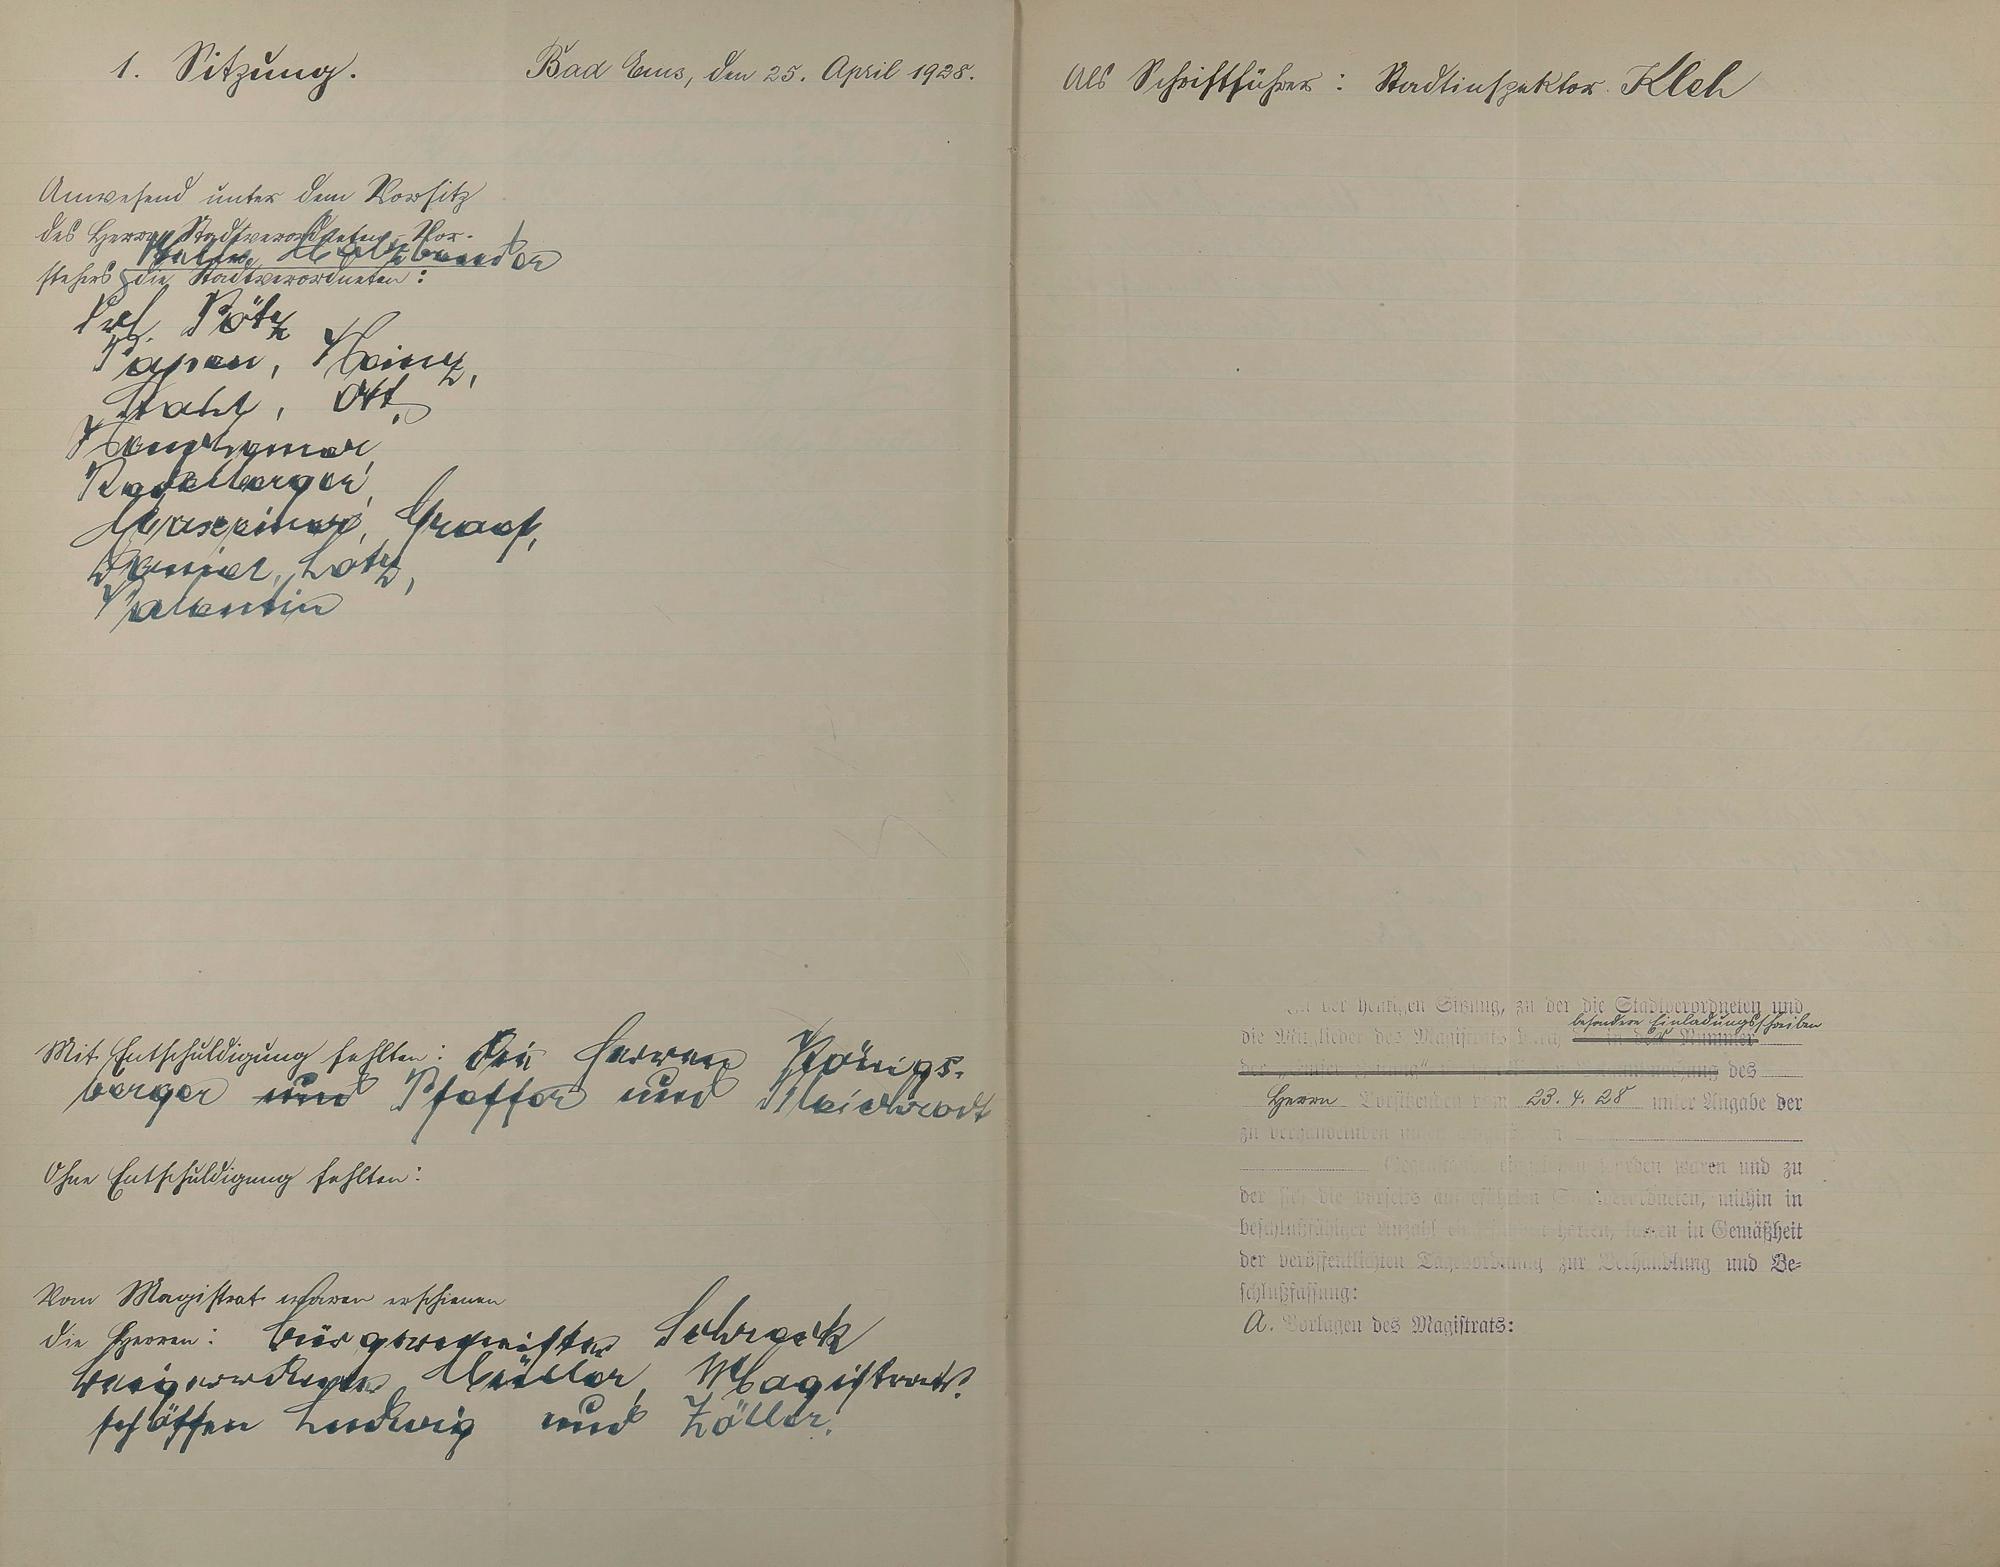 1. Sitzung. Bad Ems, den 25. April 1928.
Anwesend unter dem Vorsitz
des Herrn Stadtverordneten-Vor-
stehers die Stadtverordneten:
Papen, Heinz,
Stahl, Ott,
Radelberger,
Graef,
Daniel, Lotz,
Valentin
Mit Entschuldigung fehlten: die Herren Königs-
berger und Pfeffer und
Ohne Entschuldigung fehlten:
Vom Magistrat waren erschienen
die Herren: Bürgermeister Schreck
Beigeordneter Müller, Magistrats-
schöffen Ludwig und Zöller.
Als Schriftführer: Stadtinspektor Kleh
In der heutigen Sitzung, zu der die Stadtverordneten und
besondere Einladungsschreiben
die Mitglieder des Magistrats durch in der Nummer
des
Herrn Vorsitzenden vom 23. 4. 28 unter Angabe der
zu verhandelnden
worden waren und zu
der sich die vorseits aufgeführten Stadtverordneten, mithin in
beschlußfähiger Anzahl eingefunden hatten, kamen in Gemäßheit
der veröffentlichten Tagesordnung zur Verhandlung und Be-
schlußfassung:
A. Vorlagen des Magistrats: